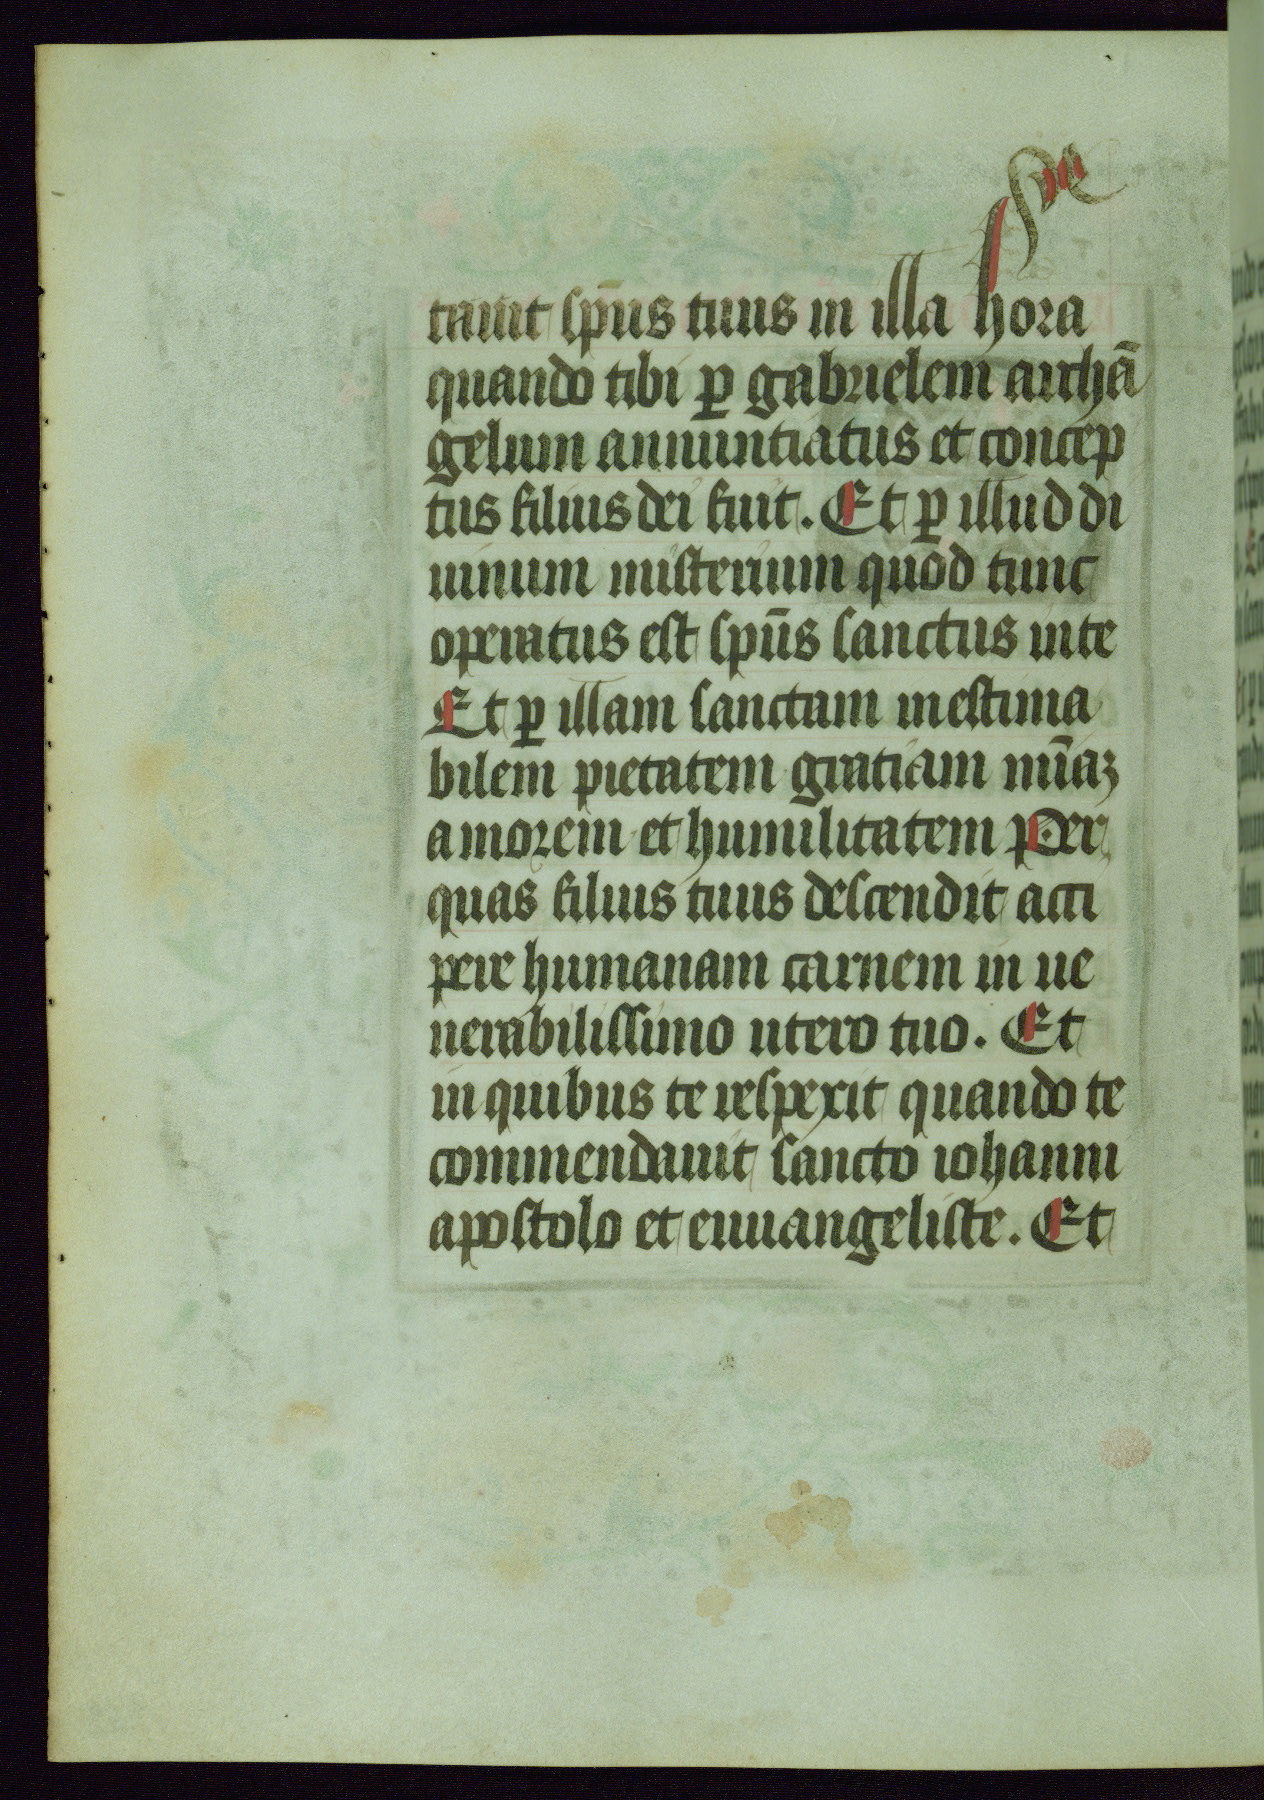 tauit spūs tuus in illa hora
quando tibi ꝑ gabrielem archā
gelum annuntiatus et concep
tus filius dei fuit. Et ꝑ illud di
uinum misterium quod tunc
operatus est spūs sanctus in te
Et ꝑ illam sanctam inestima
bilem pietatem gratiam mīaꝫ
amorem et humilitatem Per
quas filius tuus descendit acci
pere humanam carnem in ue
nerabilissimo utero tuo. Et
in quibus te respexit quando te
commendauit sancto iohanni
apostolo et euuangeliste. Et